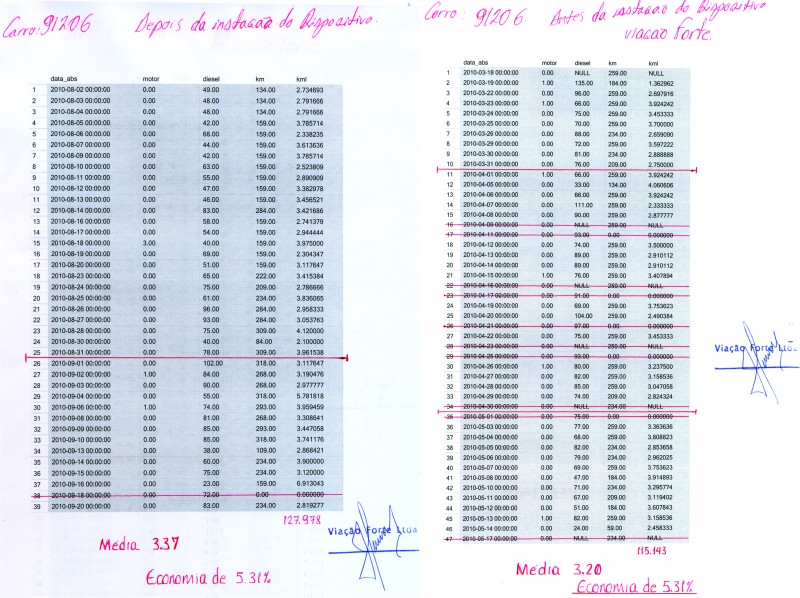 Carro: 91206 Depois da instacaã do Dispositivo.
data_abs motor diesel km kml
1 2010-08-02 00:00:00 0.00 49.00 134.00 2.734693
2 2010-08-03 00:00:00 0.00 48.00 134.00 2.791666
3 2010-08-04 00:00:00 0.00 48.00 134.00 2.791666
4 2010-08-05 00:00:00 0.00 42.00 159.00 3.785714
5 2010-08-06 00:00:00 0.00 68.00 159.00 2.338235
6 2010-08-07 00:00:00 0.00 44.00 159.00 3.613636
7 2010-08-09 00:00:00 0.00 42.00 159.00 3.785714
8 2010-08-10 00:00:00 0.00 63.00 159.00 2.523809
9 2010-08-11 00:00:00 0.00 55.00 159.00 2.890909
10 2010-08-12 00:00:00 0.00 47.00 159.00 3.382978
11 2010-08-13 00:00:00 0.00 46.00 159.00 3.456521
12 2010-08-14 00:00:00 0.00 83.00 284.00 3.421686
13 2010-08-16 00:00:00 0.00 58.00 159.00 2.741379
14 2010-08-17 00:00:00 0.00 54.00 159.00 2.944444
15 2010-08-18 00:00:00 3.00 40.00 159.00 3.975000
16 2010-08-19 00:00:00 0.00 69.00 159.00 2.304347
17 2010-08-20 00:00:00 0.00 51.00 159.00 3.117647
18 2010-08-23 00:00:00 0.00 65.00 222.00 3.415384
19 2010-08-24 00:00:00 0.00 75.00 209.00 2.786666
20 2010-08-25 00:00:00 0.00 61.00 234.00 3.836065
21 2010-08-26 00:00:00 0.00 96.00 284.00 2.958333
22 2010-08-27 00:00:00 0.00 93.00 284.00 3.053763
23 2010-08-28 00:00:00 0.00 75.00 309.00 4.120000
24 2010-08-30 00:00:00 0.00 40.00 84.00 2.100000
25 2010-08-31 00:00:00 0.00 78.00 309.00 3.961538
26 2010-09-01 00:00:00 0.00 102.00 318.00 3.117647
27 2010-09-02 00:00:00 1.00 84.00 268.00 3.190476
28 2010-09-03 00:00:00 0.00 90.00 268.00 2.977777
29 2010-09-04 00:00:00 0.00 55.00 318.00 5.781818
30 2010-09-06 00:00:00 1.00 74.00 293.00 3.959459
31 2010-09-08 00:00:00 0.00 81.00 268.00 3.308641
32 2010-09-09 00:00:00 0.00 85.00 293.00 3.447058
33 2010-09-10 00:00:00 0.00 85.00 318.00 3.741176
34 2010-09-13 00:00:00 0.00 38.00 109.00 2.868421
35 2010-09-14 00:00:00 0.00 60.00 234.00 3.900000
36 2010-09-15 00:00:00 0.00 75.00 234.00 3.120000
37 2010-09-16 00:00:00 0.00 23.00 159.00 6.913043
38 2010-09-18 00:00:00 0.00 72.00 0.00 0.000000
39 2010-09-20 00:00:00 0.00 83.00 234.00 2.819277
127.978
Viação Forte Ltda
Média 3.37
Economia de 5.31%
Carro: 91206. Antes da instacao do Dispositivo
viaçao Forte.
data_abs motor diesel km kml
1 2010-03-18 00:00:00 0.00 NULL 259.00 NULL
2 2010-03-19 00:00:00 1.00 135.00 184.00 1.362962
3 2010-03-22 00:00:00 0.00 96.00 259.00 2.697916
4 2010-03-23 00:00:00 1.00 66.00 259.00 3.924242
5 2010-03-24 00:00:00 0.00 75.00 259.00 3.453333
6 2010-03-25 00:00:00 0.00 70.00 259.00 3.700000
7 2010-03-26 00:00:00 0.00 88.00 234.00 2.659090
8 2010-03-29 00:00:00 0.00 72.00 259.00 3.597222
9 2010-03-30 00:00:00 0.00 81.00 234.00 2.888888
10 2010-03-31 00:00:00 0.00 76.00 209.00 2.750000
11 2010-04-01 00:00:00 1.00 66.00 259.00 3.924242
12 2010-04-05 00:00:00 0.00 33.00 134.00 4.060606
13 2010-04-06 00:00:00 0.00 66.00 259.00 3.924242
14 2010-04-07 00:00:00 0.00 111.00 259.00 2.333333
15 2010-04-08 00:00:00 0.00 90.00 259.00 2.877777
16 2010-04-09 00:00:00 0.00 NULL 289.00 NULL
17 2010-04-11 00:00:00 0.00 93.00 0.00 0.000000
18 2010-04-12 00:00:00 0.00 74.00 259.00 3.500000
19 2010-04-13 00:00:00 0.00 89.00 259.00 2.910112
20 2010-04-14 00:00:00 0.00 89.00 259.00 2.910112
21 2010-04-15 00:00:00 1.00 76.00 259.00 3.407894
22 2010-04-16 00:00:00 0.00 NULL 259.00 NULL
23 2010-04-17 00:00:00 0.00 91.00 0.00 0.000000
24 2010-04-19 00:00:00 0.00 69.00 259.00 3.753623
25 2010-04-20 00:00:00 0.00 104.00 259.00 2.490384
26 2010-04-21 00:00:00 0.00 97.00 0.00 0.000000
27 2010-04-22 00:00:00 0.00 75.00 259.00 3.453333
28 2010-04-23 00:00:00 0.00 NULL 259.00 NULL
29 2010-04-25 00:00:00 0.00 93.00 0.00 0.000000
30 2010-04-26 00:00:00 1.00 80.00 259.00 3.237500
31 2010-04-27 00:00:00 0.00 82.00 259.00 3.158536
32 2010-04-28 00:00:00 0.00 85.00 259.00 3.047058
33 2010-04-29 00:00:00 0.00 74.00 209.00 2.824324
34 2010-04-30 00:00:00 0.00 NULL 234.00 NULL
35 2010-05-01 00:00:00 0.00 75.00 0.00 0.000000
36 2010-05-03 00:00:00 0.00 77.00 259.00 3.363636
37 2010-05-04 00:00:00 0.00 68.00 259.00 3.808823
38 2010-05-05 00:00:00 0.00 82.00 234.00 2.853658
39 2010-05-06 00:00:00 0.00 79.00 234.00 2.962025
40 2010-05-07 00:00:00 0.00 69.00 259.00 3.753623
41 2010-05-08 00:00:00 0.00 47.00 184.00 3.914893
42 2010-05-10 00:00:00 0.00 71.00 234.00 3.295774
43 2010-05-11 00:00:00 0.00 67.00 209.00 3.119402
44 2010-05-12 00:00:00 0.00 51.00 184.00 3.607843
45 2010-05-13 00:00:00 1.00 82.00 259.00 3.158536
46 2010-05-14 00:00:00 0.00 24.00 59.00 2.458333
47 2010-05-17 00:00:00 0.00 NULL 234.00 NULL
115.143
Viação Forte Ltda
Média 3.20
Economia de 5.31%